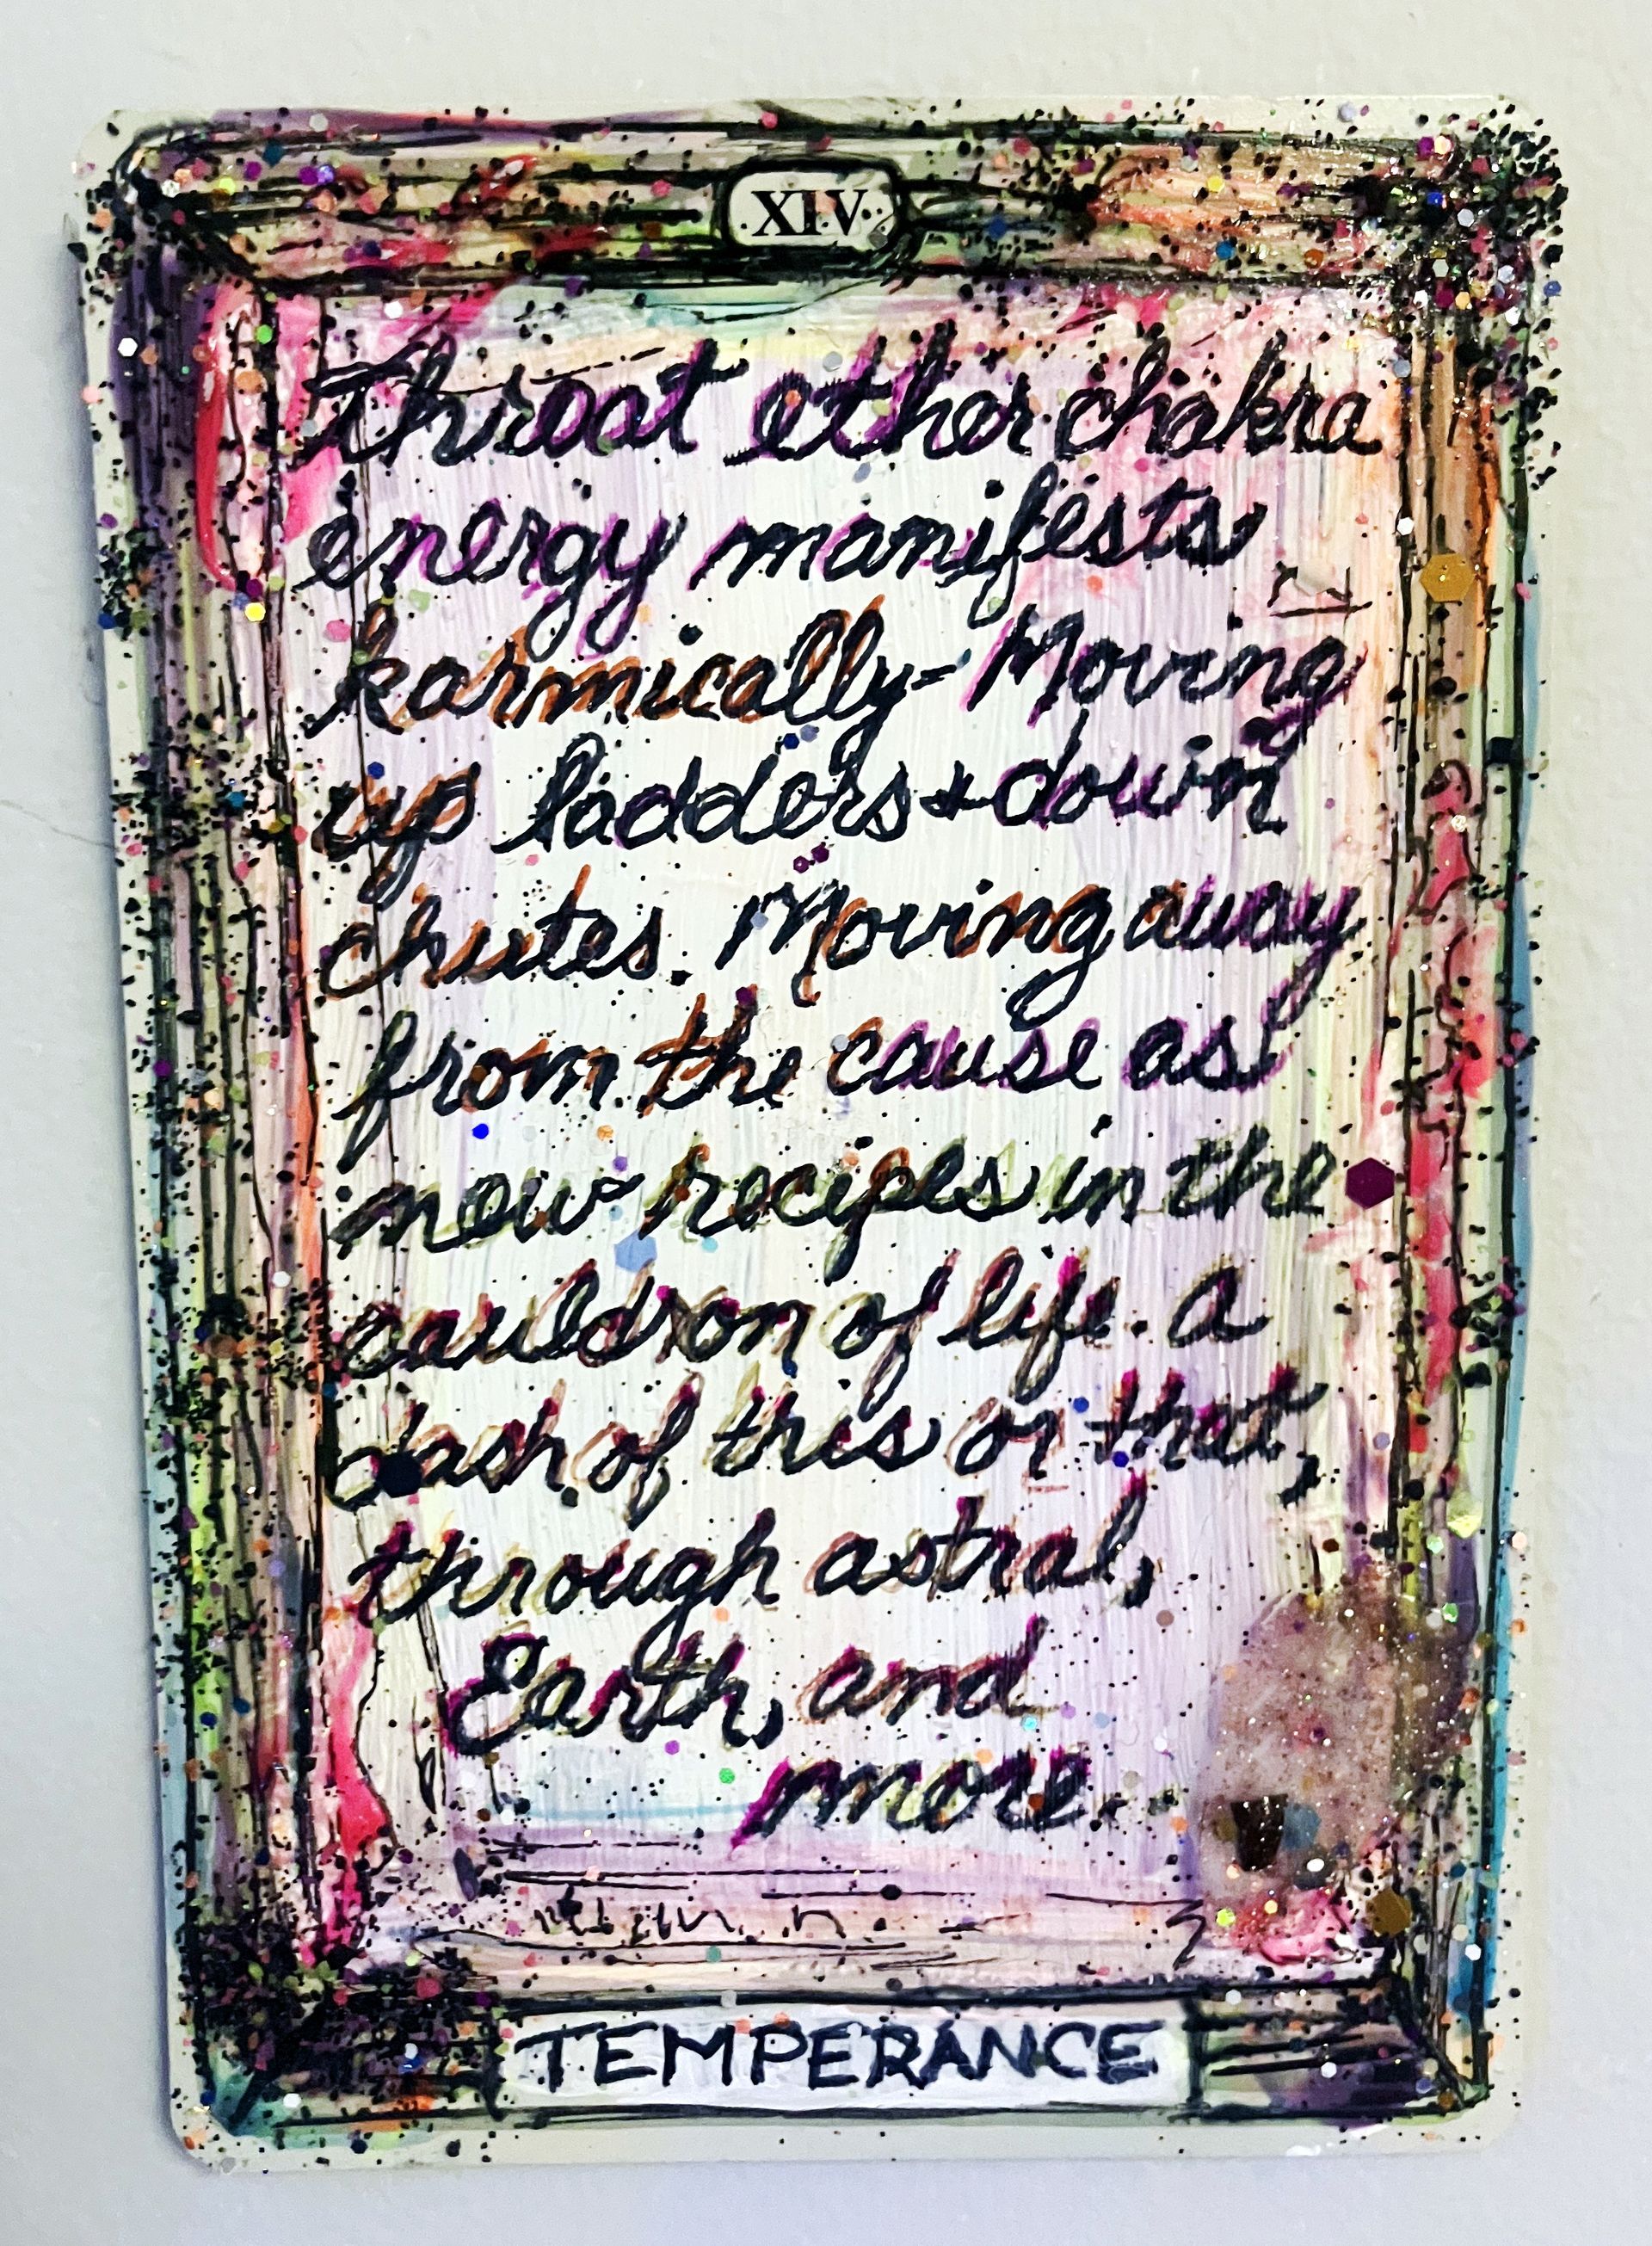 XIV
throat ether chakra
energy manifests
karmically - Moving
up ladders & down
chutes. Moving away
from the cause as
new recipes in the
cauldron of life. A
dash of this or that,
through astral,
Earth, and
more.
TEMPERANCE